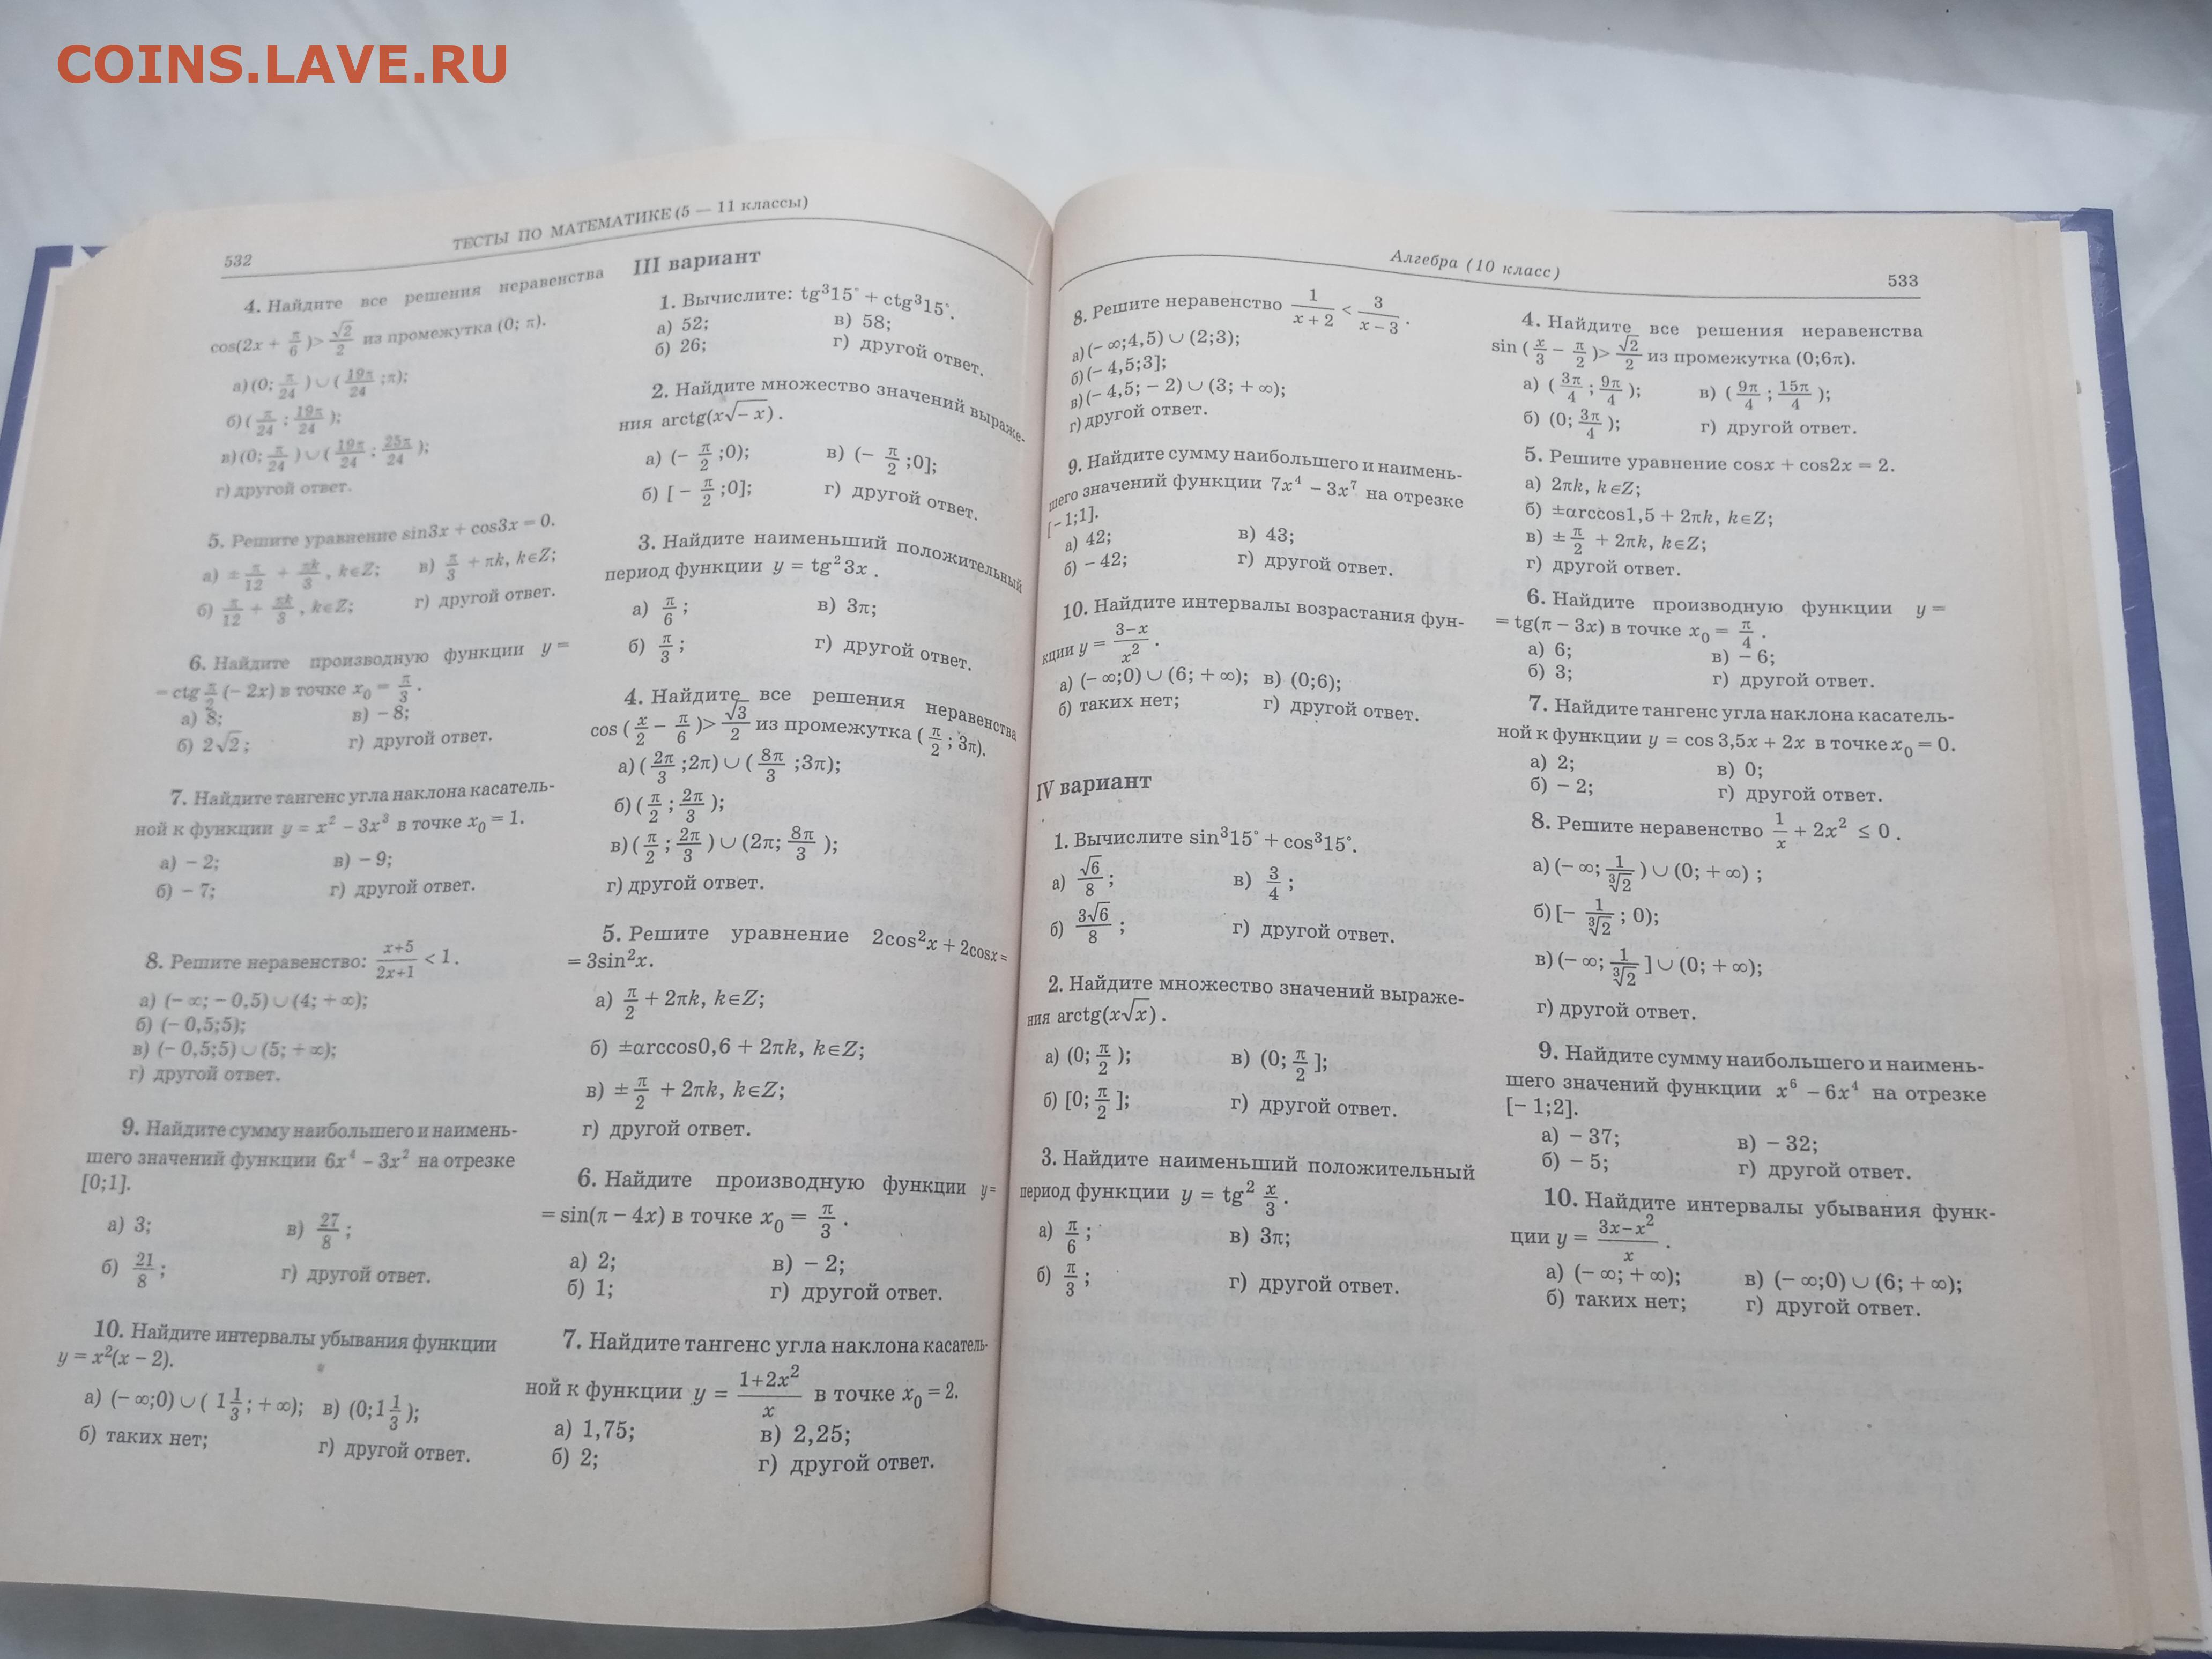 COINS.LAVE.RU
532
ТЕСТЫ ПО МАТЕМАТИКЕ (5 — 11 классы)
4. Найдите все решения неравенства
cos(2x + π/6) > √2/2 из промежутка (0; π).
а) (0; π/24) ∪ (19π/24; π);
б) (π/24; 19π/24);
в) (0; π/24) ∪ (19π/24; 25π/24);
г) другой ответ.
5. Решите уравнение sin3x + cos3x = 0.
а) ± π/12 + πk/3, k∈Z; в) π/3 + πk, k∈Z;
б) π/12 + πk/3, k∈Z; г) другой ответ.
6. Найдите производную функции y =
= ctg π/2 (− 2x) в точке x₀ = π/3.
а) 8; в) − 8;
б) 2√2; г) другой ответ.
7. Найдите тангенс угла наклона касатель-
ной к функции y = x² − 3x³ в точке x₀ = 1.
а) − 2; в) − 9;
б) − 7; г) другой ответ.
8. Решите неравенство: (x+5)/(2x+1) < 1.
а) (− ∞; − 0,5) ∪ (4; + ∞);
б) (− 0,5;5);
в) (− 0,5;5) ∪ (5; + ∞);
г) другой ответ.
9. Найдите сумму наибольшего и наимень-
шего значений функции 6x⁴ − 3x² на отрезке
[0;1].
а) 3; в) 27/8;
б) 21/8; г) другой ответ.
10. Найдите интервалы убывания функции
y = x²(x − 2).
а) (− ∞;0) ∪ (1 1/3; + ∞); в) (0;1 1/3);
б) таких нет; г) другой ответ.
III вариант
1. Вычислите: tg³15° + ctg³15°.
а) 52; в) 58;
б) 26; г) другой ответ.
2. Найдите множество значений выраже-
ния arctg(x√−x).
а) (− π/2;0); в) (− π/2;0];
б) [− π/2;0]; г) другой ответ.
3. Найдите наименьший положительный
период функции y = tg² 3x.
а) π/6; в) 3π;
б) π/3; г) другой ответ.
4. Найдите все решения неравенства
cos (x/2 − π/6) > √3/2 из промежутка (π/2; 3π).
а) (2π/3;2π) ∪ (8π/3;3π);
б) (π/2; 2π/3);
в) (π/2; 2π/3) ∪ (2π; 8π/3);
г) другой ответ.
5. Решите уравнение 2cos²x + 2cosx =
= 3sin²x.
а) π/2 + 2πk, k∈Z;
б) ±arccos0,6 + 2πk, k∈Z;
в) ± π/2 + 2πk, k∈Z;
г) другой ответ.
6. Найдите производную функции y=
= sin(π − 4x) в точке x₀ = π/3.
а) 2; в) − 2;
б) 1; г) другой ответ.
7. Найдите тангенс угла наклона касатель-
ной к функции y = (1+2x²)/x в точке x₀ = 2.
а) 1,75; в) 2,25;
б) 2; г) другой ответ.
Алгебра (10 класс)
533
8. Решите неравенство 1/(x + 2) < 3/(x − 3).
а) (− ∞;4,5) ∪ (2;3);
б) (− 4,5;3];
в) (− 4,5; − 2) ∪ (3; + ∞);
г) другой ответ.
9. Найдите сумму наибольшего и наимень-
шего значений функции 7x⁴ − 3x⁷ на отрезке
[− 1;1].
а) 42; в) 43;
б) − 42; г) другой ответ.
10. Найдите интервалы возрастания фун-
кции y = (3−x)/x².
а) (− ∞;0) ∪ (6; + ∞); в) (0;6);
б) таких нет; г) другой ответ.
IV вариант
1. Вычислите sin³15° + cos³15°.
а) √6/8; в) 3/4;
б) 3√6/8; г) другой ответ.
2. Найдите множество значений выраже-
ния arctg(x√x).
а) (0; π/2); в) (0; π/2];
б) [0; π/2]; г) другой ответ.
3. Найдите наименьший положительный
период функции y = tg² x/3.
а) π/6; в) 3π;
б) π/3; г) другой ответ.
4. Найдите все решения неравенства
sin (x/3 − π/2) > √2/2 из промежутка (0;6π).
а) (3π/4; 9π/4); в) (9π/4; 15π/4);
б) (0; 3π/4); г) другой ответ.
5. Решите уравнение cosx + cos2x = 2.
а) 2πk, k∈Z;
б) ±arccos1,5 + 2πk, k∈Z;
в) ± π/2 + 2πk, k∈Z;
г) другой ответ.
6. Найдите производную функции y =
= tg(π − 3x) в точке x₀ = π/4.
а) 6; в) − 6;
б) 3; г) другой ответ.
7. Найдите тангенс угла наклона касатель-
ной к функции y = cos 3,5x + 2x в точке x₀ = 0.
а) 2; в) 0;
б) − 2; г) другой ответ.
8. Решите неравенство 1/x + 2x² ≤ 0.
а) (− ∞; 1/∛2) ∪ (0; + ∞);
б) [− 1/∛2; 0);
в) (− ∞; 1/∛2] ∪ (0; + ∞);
г) другой ответ.
9. Найдите сумму наибольшего и наимень-
шего значений функции x⁶ − 6x⁴ на отрезке
[− 1;2].
а) − 37; в) − 32;
б) − 5; г) другой ответ.
10. Найдите интервалы убывания функ-
ции y = (3x−x²)/x.
а) (− ∞; + ∞); в) (− ∞;0) ∪ (6; + ∞);
б) таких нет; г) другой ответ.